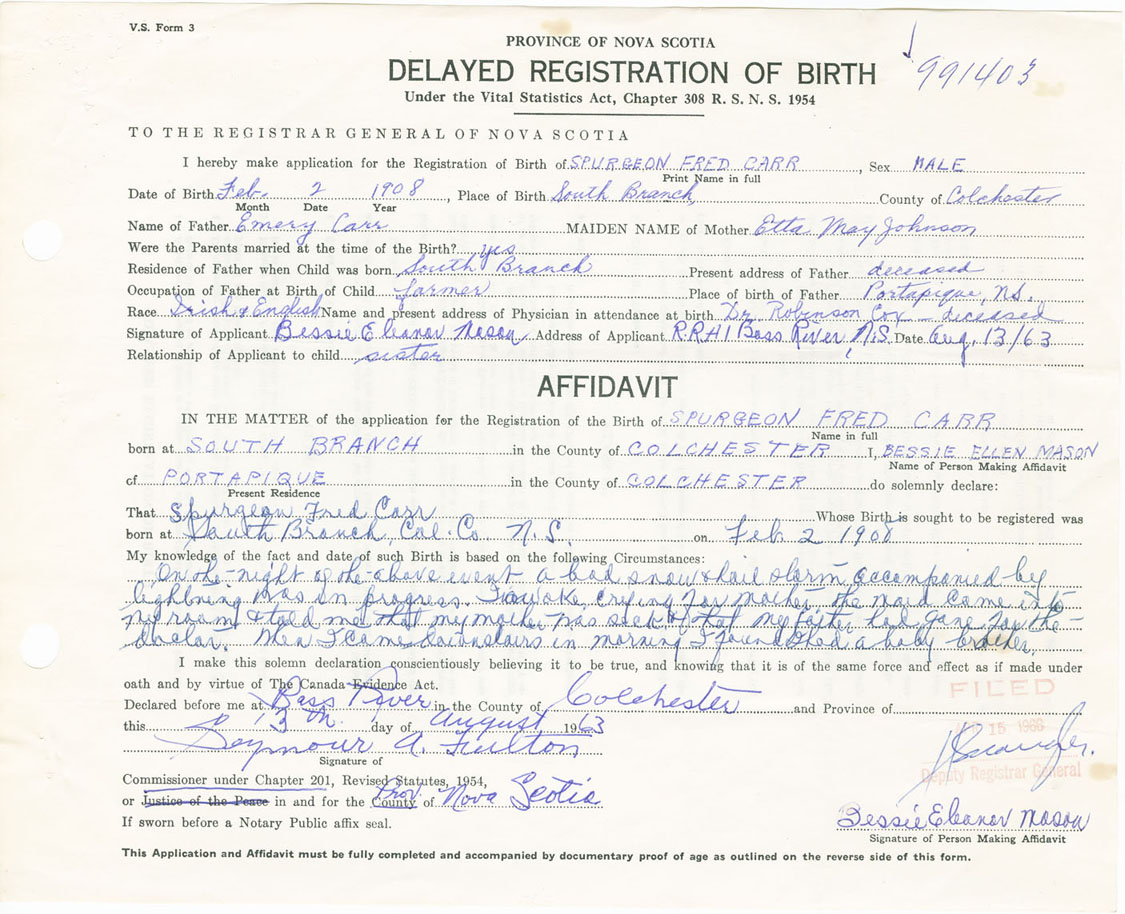 V.S. Form 3
PROVINCE OF NOVA SCOTIA
DELAYED REGISTRATION OF BIRTH
991403
Under the Vital Statistics Act, Chapter 308 R. S. N. S. 1954
TO THE REGISTRAR GENERAL OF NOVA SCOTIA
I hereby make application for the Registration of Birth of SPURGEON FRED CARR, Sex MALE
Print Name in full
Date of Birth Feb. 2 1908, Place of Birth South Branch, County of Colchester
Month Date Year
Name of Father Emery Carr MAIDEN NAME of Mother Etta May Johnson
Were the Parents married at the time of the Birth? yes
Residence of Father when Child was born South Branch Present address of Father deceased
Occupation of Father at Birth of Child farmer Place of birth of Father Portapique, N.S.
Race Irish & English Name and present address of Physician in attendance at birth Dr. Robinson Cox - deceased
Signature of Applicant Bessie Eleanor Mason Address of Applicant R.R.#1 Bass River, N.S. Date Aug, 13/63
Relationship of Applicant to child sister
AFFIDAVIT
IN THE MATTER of the application for the Registration of the Birth of SPURGEON FRED CARR
Name in full
born at SOUTH BRANCH in the County of COLCHESTER I, BESSIE ELLEN MASON
Name of Person Making Affidavit
of PORTAPIQUE in the County of COLCHESTER do solemnly declare:
Present Residence
That Spurgeon Fred Carr Whose Birth is sought to be registered was
born at South Branch, Col. Co. N.S. on Feb 2 1908
My knowledge of the fact and date of such Birth is based on the following Circumstances:
On the night of the above event a bad snow & hail storm, accompanied by
lightning was in progress. I awoke, crying for mother, the maid came into
my room & told me that my mother was sick & that my father had gone for the
doctor. When I came downstairs in morning I found I had a baby brother.
I make this solemn declaration conscientiously believing it to be true, and knowing that it is of the same force and effect as if made under
oath and by virtue of The Canada Evidence Act.
FILED
Declared before me at Bass River in the County of Colchester and Province of
this 13th day of August 1963
15
Seymour A. Fulton
Signature of
Deputy Registrar General
Commissioner under Chapter 201, Revised Statutes, 1954,
or Justice of the Peace in and for the County Prov. of Nova Scotia
If sworn before a Notary Public affix seal.
Bessie Eleanor Mason
Signature of Person Making Affidavit
This Application and Affidavit must be fully completed and accompanied by documentary proof of age as outlined on the reverse side of this form.